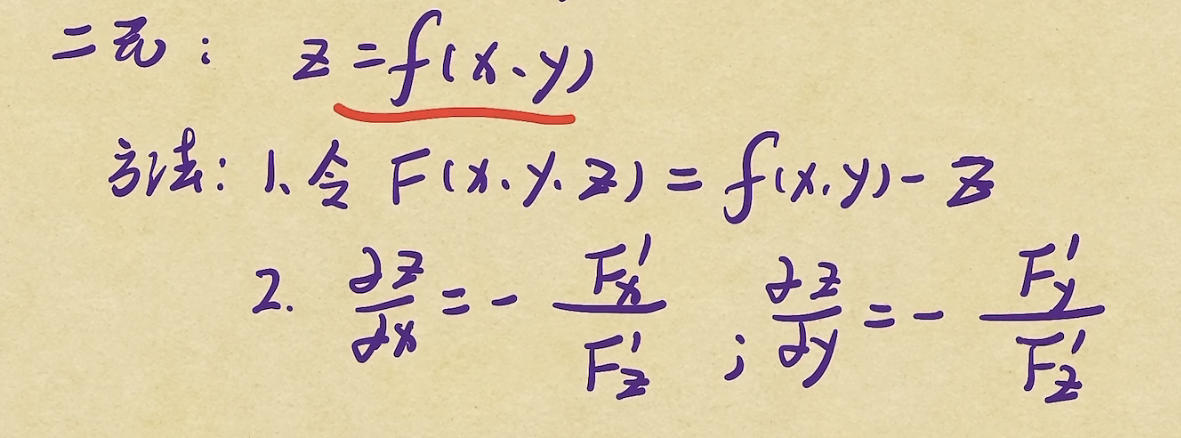 二元：z=f(x、y)
方法：1、令 F(x、y、z)=f(x,y)-z
2. ∂z/∂x=-F'x/F'z ; ∂z/∂y=-F'y/F'z